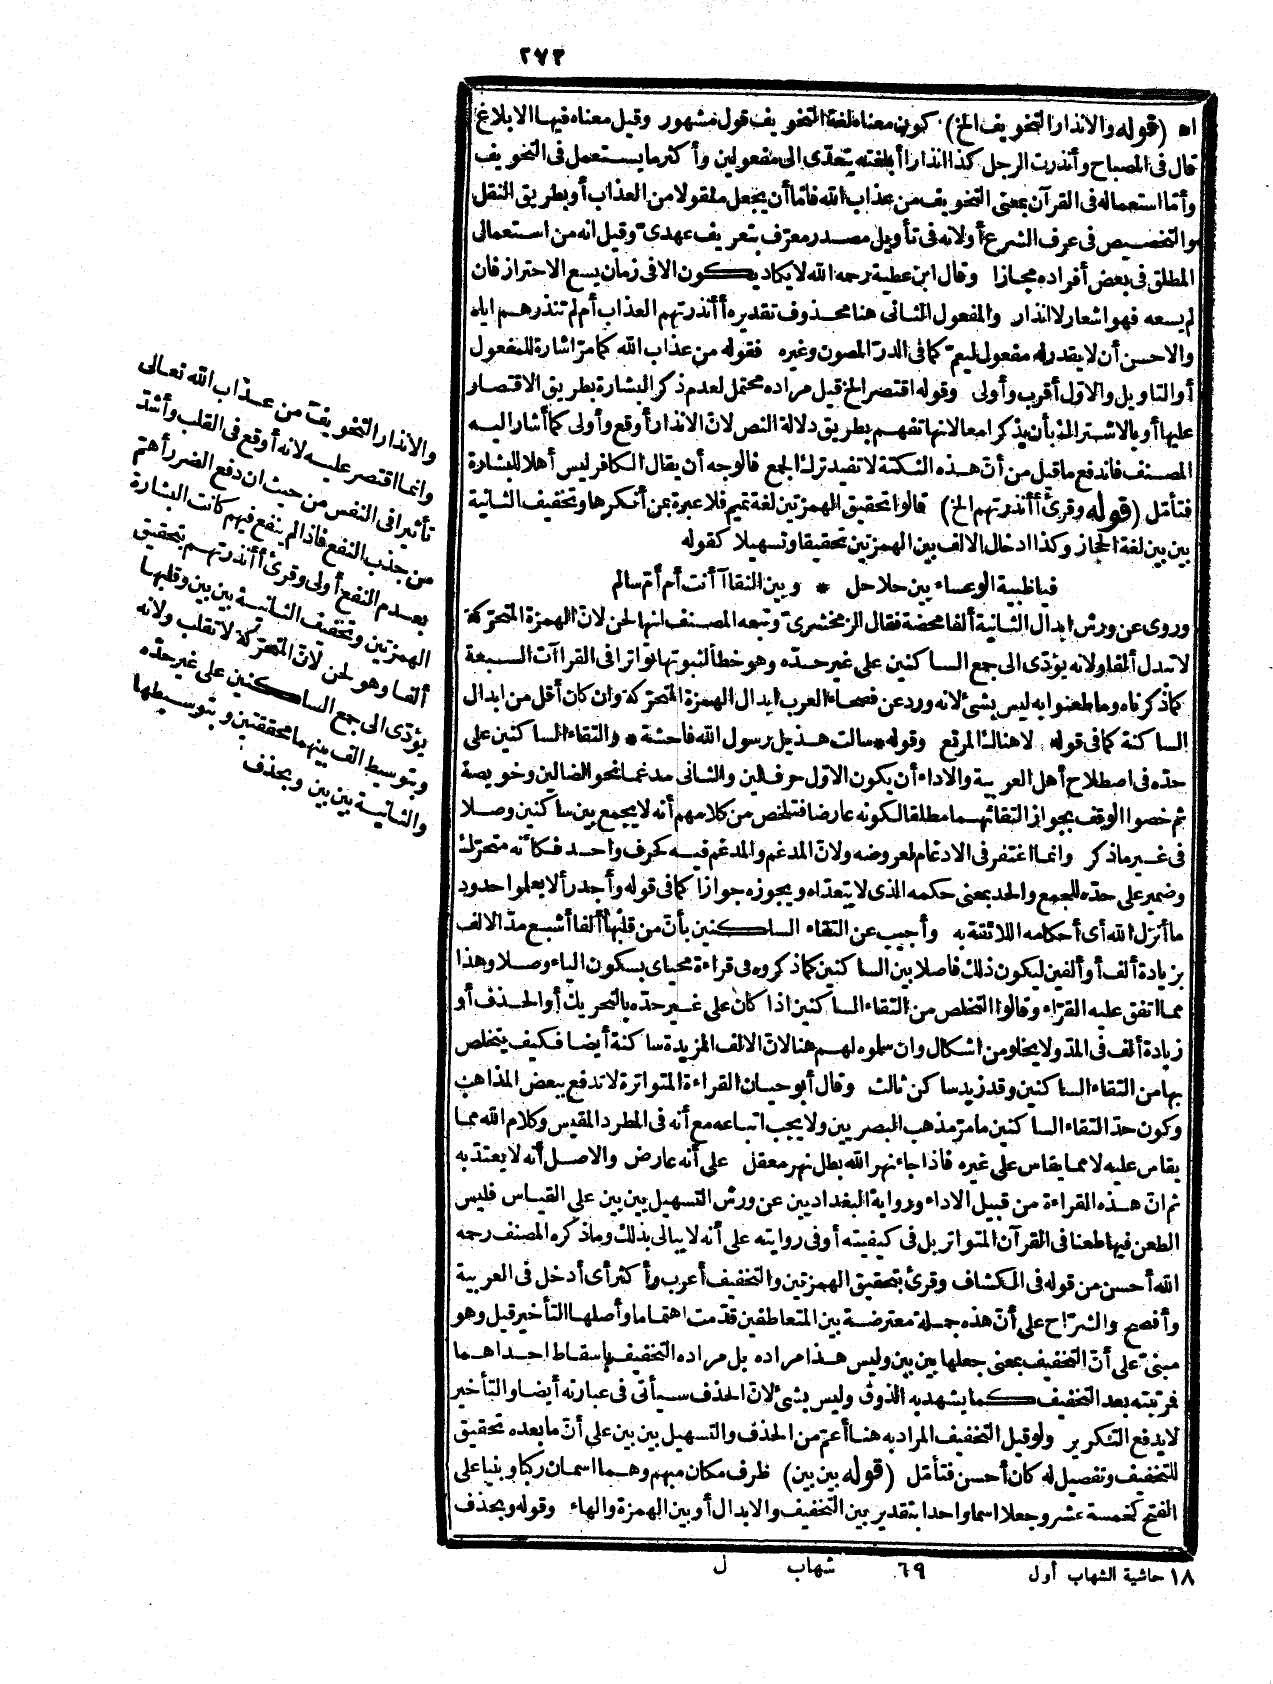 ٢٧٣
اه (قوله والانذار التخويف الخ) كون معناه لغة التخويف قول مشهور وقيل معناه فيها الابلاغ
قال فى المصباح وأنذرت الرجل كذا انذارا أبلغته يتعدّى الى مفعولين وأكثر ما يستعمل فى التخويف
وأمّا استعماله فى القرآن بمعنى التخويف من عذاب الله فامّا أن يجعل منقولا من العذاب أو بطريق النقل
والتخصيص فى عرف الشرع أو لانه فى تأويل مصدر معرّف بتعريف عهدىّ وقيل انه من استعمالى
المطلق فى بعض أفراده مجازا وقال ابن عطية رحمه الله لا يكاد يكون الا فى زمان يسع الاحتراز فان
لم يسعه فهو اشعار لا انذار والمفعول الثانى هنا محذوف تقديره أأنذرتهم العذاب أم لم تنذرهم اياه
والاحسن أن لا يقدر له مفعول ليعمّ كما فى الدرّ المصون وغيره فقوله من عذاب الله كما مرّ اشارة للمفعول
أو التأويل والاوّل أقرب وأولى وقوله اقتصر الخ قيل مراده محتمل لعدم ذكر البشارة بطريق الاقتصار
عليها أو بالاشتراك بأن يذكرا معا لانها تفهم بطريق دلالة النص لانّ الانذار أوقع وأولى كما أشار اليه
المصنف فاندفع ما قيل من أنّ هذه النكتة لا تفيد ترك الجمع فالوجه أن يقال الكافر ليس أهلا للبشارة
فتأمّل (قوله وقرئ أأنذرتهم الخ) قالوا تحقيق الهمزتين لغة تميم فلا عبرة بمن أنكرها وتخفيف الثانية
بين بين لغة الحجاز وكذا ادخال الالف بين الهمزتين تحقيقا وتسهيلا كقوله
فيا ظبية الوعساء بين حلاحل * وبين النقا آأنت أم أمّ سالم
وروى عن ورش ابدال الثانية ألفا محضة فقال الزمخشرىّ وتبعه المصنف انها لحن لانّ الهمزة المتحرّكة
لا تبدل ألفا ولانه يؤدّى الى جمع الساكنين على غير حدّه وهو خطأ لثبوتها تواترا فى القراآت السبعة
كما ذكرناه وما طعنوا به ليس بشئ لانه ورد عن فصحاء العرب ابدال الهمزة المتحرّكة وان كان أقل من ابدال
الساكنة كما فى قوله لا هناك المرتع وقوله * سالت هذيل رسول الله فاحشة * والتقاء الساكنين على
حدّه فى اصطلاح أهل العربية والاداء أن يكون الاوّل حرف لين والثانى مدغما نحو الضالين وخويصة
ثم خصوا الوقف بجواز التقائهما مطلقا لكونه عارضا فتلخص من كلامهم أنه لا يجمع بين ساكنين وصلا
فى غير ما ذكر وانما اغتفر فى الادغام لعروضه ولانّ المدغم والمدغم فيه كحرف واحد فكأنه متحرّك
وضمير على حدّه للجمع والحد بمعنى حكمه الذى لا يتعدّاه ويجوزه جوازا كما فى قوله وأجدر ألا يعلموا حدود
ما أنزل الله أى أحكامه اللائقة به وأجيب عن التقاء الساكنين بأنّ من قلبها ألفا أشبع مدّ الالف
بزيادة ألف أو ألفين ليكون ذلك فاصلا بين الساكنين كما ذكروه فى قراءة محياى بسكون الياء وصلا وهذا
مما اتفق عليه القرّاء وقالوا التخلص من التقاء الساكنين اذا كان على غير حدّه بالتحريك أو الحذف أو
زيادة ألف فى المدّ ولا يخلو من اشكال وان سلموه لهم هنا لانّ الالف المزيدة ساكنة أيضا فكيف يتخلص
بها من التقاء الساكنين وقد زيد ساكن ثالث وقال أبو حيان القراءة المتواترة لا تدفع ببعض المذاهب
وكون حدّ التقاء الساكنين ما مرّ مذهب البصريين ولا يجب اتباعه مع أنه فى المطرد المقيس وكلام الله مما
يقاس عليه لا مما يقاس على غيره فاذا جاء نهر الله بطل نهر معقل على أنه عارض والاصل أنه لا يعتدّ به
ثم انّ هذه القراءة من قبيل الاداء ورواية البغداديين عن ورش التسهيل بين بين على القياس فليس
الطعن فيها طعنا فى القرآن المتواتر بل فى كيفيته أو فى روايته على أنه لا يبالى بذلك وما ذكره المصنف رحمه
الله أحسن من قوله فى الكشاف وقرئ بتحقيق الهمزتين والتخفيف أعرب وأكثر أى أدخل فى العربية
وأفصح والشرّاح على أنّ هذه جملة معترضة بين المتعاطفين قدّمت اهتماما وأصلها التأخير قيل وهو
مبنىّ على أنّ التخفيف بمعنى جعلها بين بين وليس هذا مراده بل مراده التخفيف باسقاط احداهما
فرتبته بعد التخفيف كما يشهد به الذوق وليس بشئ لانّ الحذف سيأتى فى عبارته أيضا والتأخير
لا يدفع التكرير ولو قيل التخفيف المراد به هنا أعمّ من الحذف والتسهيل بين بين على أنّ ما بعده تحقيق
للتخفيف وتفصيل له كان أحسن فتأمّل (قوله بين بين) ظرف مكان مبهم وهما اسمان ركبا وبنيا على
الفتح كخمسة عشر وجعلا اسما واحدا بتقدير بين التخفيف والابدال أو بين الهمزة والهاء وقوله وبحذف
والانذار التخويف من عذاب الله تعالى
وانما اقتصر عليه لانه أوقع فى القلب وأشدّ
تأثيرا فى النفس من حيث ان دفع الضرر أهمّ
من جذب النفع فاذا لم ينفع فيهم كانت البشارة
بعدم النفع أولى وقرئ أأنذرتهم بتحقيق
الهمزتين وتخفيف الثانية بين بين وقلبها
ألفا وهو لحن لانّ المتحرّكة لا تقلب ولانه
يؤدّى الى جمع الساكنين على غير حدّه
وبتوسيط ألف بينهما محققتين وبتوسيطها
والثانية بين بين وبحذف
١٨ حاشية الشهاب أول ٦٩ شهاب ل